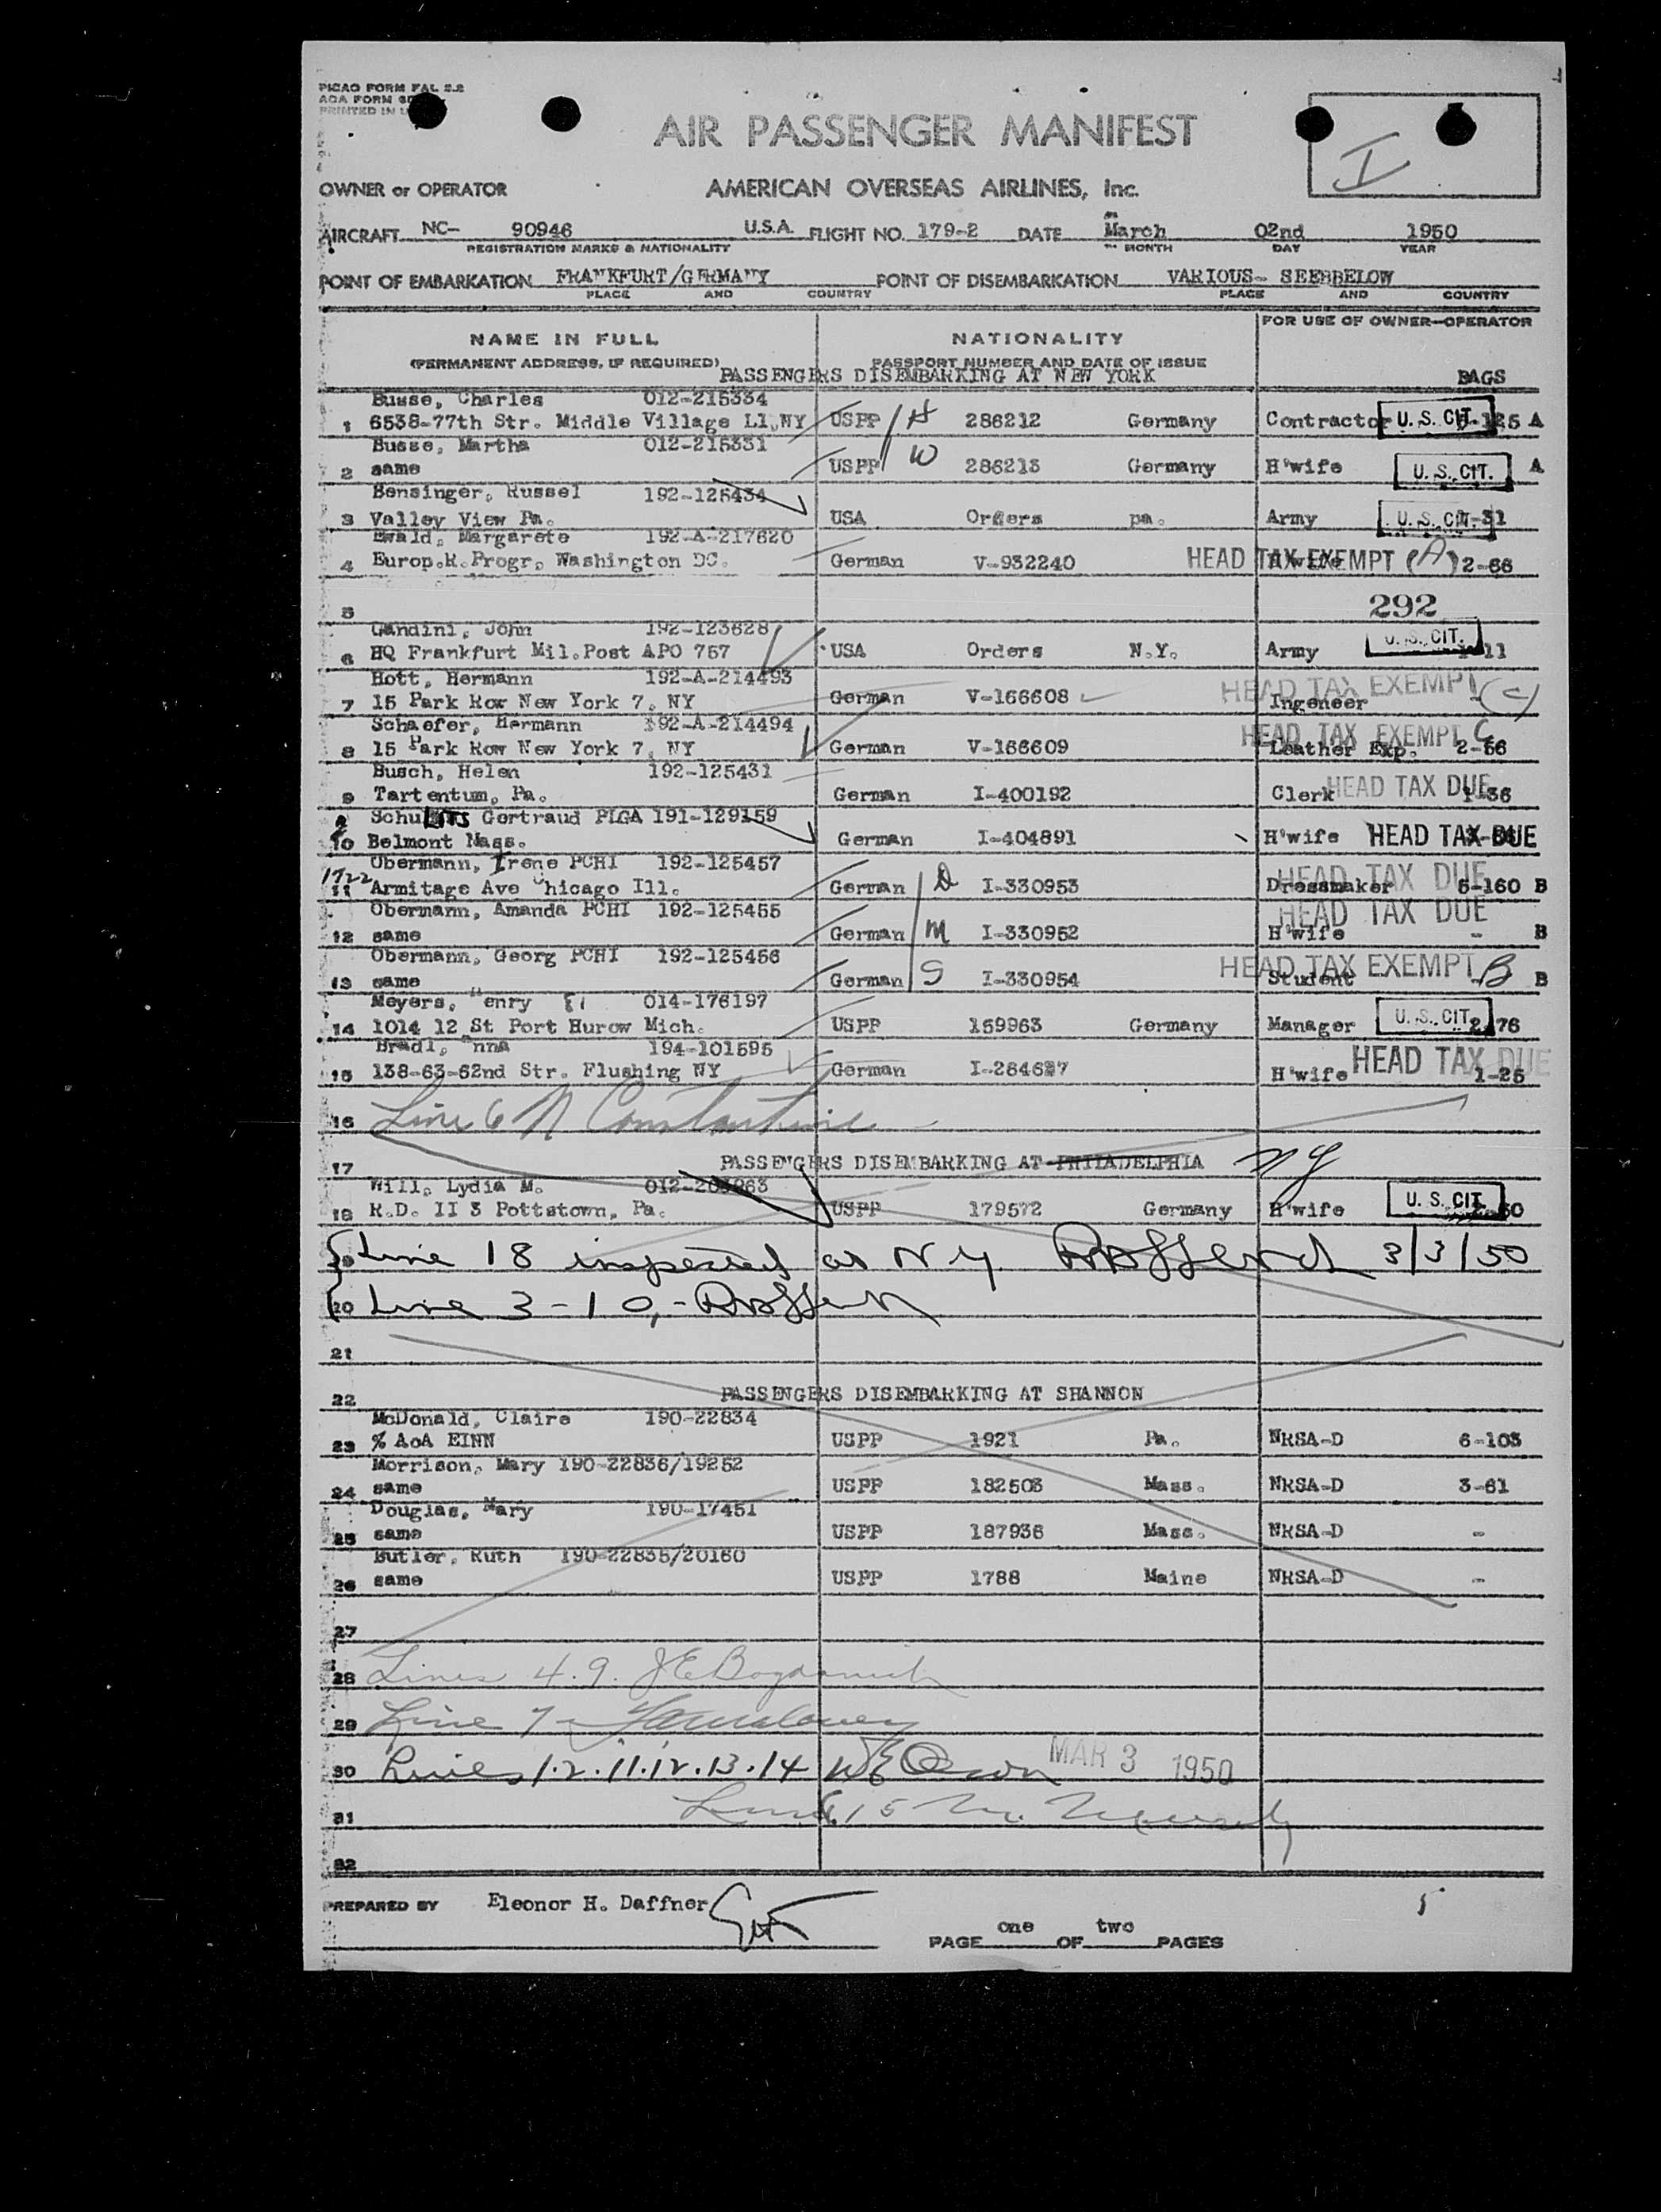 PICAO FORM FAL 2.2
AOA FORM
PRINTED IN
AIR PASSENGER MANIFEST
I
OWNER or OPERATOR AMERICAN OVERSEAS AIRLINES, Inc.
AIRCRAFT NC- 90946 U.S.A. FLIGHT NO. 179-2 DATE March 02nd 1950
REGISTRATION MARKS & NATIONALITY MONTH DAY YEAR
POINT OF EMBARKATION FRANKFURT/GERMANY POINT OF DISEMBARKATION VARIOUS- SEEBBELOW
PLACE AND COUNTRY PLACE AND COUNTRY
NAME IN FULL NATIONALITY FOR USE OF OWNER-OPERATOR
(PERMANENT ADDRESS, IF REQUIRED) PASSPORT NUMBER AND DATE OF ISSUE
PASSENGERS DISEMBARKING AT NEW YORK BAGS
Busse, Charles 012-215334
1 6538-77th Str. Middle Village LI,NY USPP H 286212 Germany Contractor U. S. CIT. A
Busse, Martha 012-215331
2 same USPP W 286213 Germany H'wife U. S. CIT. A
Bensinger, Russel 192-125434
3 Valley View Pa. USA Orders pa. Army U. S. CIT.
Ewald, Margarete 192-A-217620
4 Europ.R.Progr, Washington DC. German V-932240 HEAD TAX EXEMPT (A) H'wife 2-66
5 292
Gandini, John 192-123628
6 HQ Frankfurt Mil.Post APO 757 USA Orders N.Y. Army U. S. CIT.
Hott, Hermann 192-A-214493
7 15 Park Row New York 7, NY German V-166608 HEAD TAX EXEMPT (C) Ingeneer
Schaefer, Hermann 192-A-214494
8 15 Park Row New York 7, NY German V-166609 HEAD TAX EXEMPT C Leather Exp. 2-56
Busch, Helen 192-125431
9 Tartentum, Pa. German I-400192 Clerk HEAD TAX DUE
Gertraud PIGA 191-129159
10 Belmont Mass. German I-404891 H'wife HEAD TAX DUE
Obermann, Irene PCHI 192-125457
1722
11 Armitage Ave Chicago Ill. German D I-330953 Dressmaker HEAD TAX DUE 5-160 B
Obermann, Amanda PCHI 192-125455
12 same German M I-330952 H'wife HEAD TAX DUE - B
Obermann, Georg PCHI 192-125456
13 same German S I-330954 HEAD TAX EXEMPT B Student B
Meyers, Henry 014-176197
14 1014 12 St Port Hurow Mich. USPP 159963 Germany Manager U. S. CIT. 2-76
Bradl, Anna 194-101595
15 138-63-62nd Str. Flushing NY German I-284627 H'wife HEAD TAX DUE 1-25
16 Line 6 N Constantine
17 PASSENGERS DISEMBARKING AT PHILADELPHIA NY
Will, Lydia M.
18 R.D. II 3 Pottstown, Pa. USPP 179572 Germany H'wife U. S. CIT.
19 Line 18 inspected at N Y 3/3/50
20 Line 3-10,-
21
22 PASSENGERS DISEMBARKING AT SHANNON
McDonald, Claire 190-22834
23 % AoA EINN USPP 1921 Pa. NRSA-D 6-103
Morrison, Mary 190-22836/19252
24 same USPP 182503 Mass. NRSA-D 3-61
Douglas, Mary 190-17451
25 same USPP 187936 Mass. NRSA-D -
Butler, Ruth 190-22835/20160
26 same USPP 1788 Maine NRSA-D -
27
28 Lines 4. 9.
29 Line 7
30 Lines 1.2.11.12.13.14 MAR 3 1950
31 Line 15
32
PREPARED BY Eleonor H. Daffner
PAGE one OF two PAGES